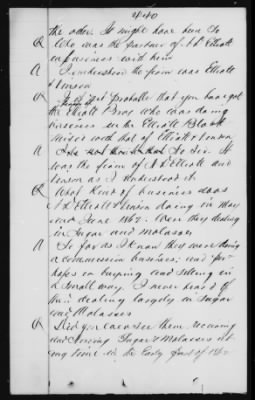 440
the order. It might have been so
Q Who was the partner of A. R. Elliott
in business with him
A I understood the firm was Elliott
& Vinson
Q Is it not probable that you have got
the Elliott Bros who was doing
business in the Elliott Block
mixed with that of Elliott & Vinson
A No Sir. It
was the firm of A R Elliott and
Vinson as I understood it.
Q What kind of business was
A R Elliott & Vinson doing in May
and June 1862. Were they dealing
in Sugar and molasses
A So far as I know they were doing
a commission business; and per-
haps in buying and selling in
a small way. I never heard of
their dealing largely in Sugar
and Molasses
Q Did you ever see them receiving
and storing Sugar & Molasses at
any time in the Early part of 1862